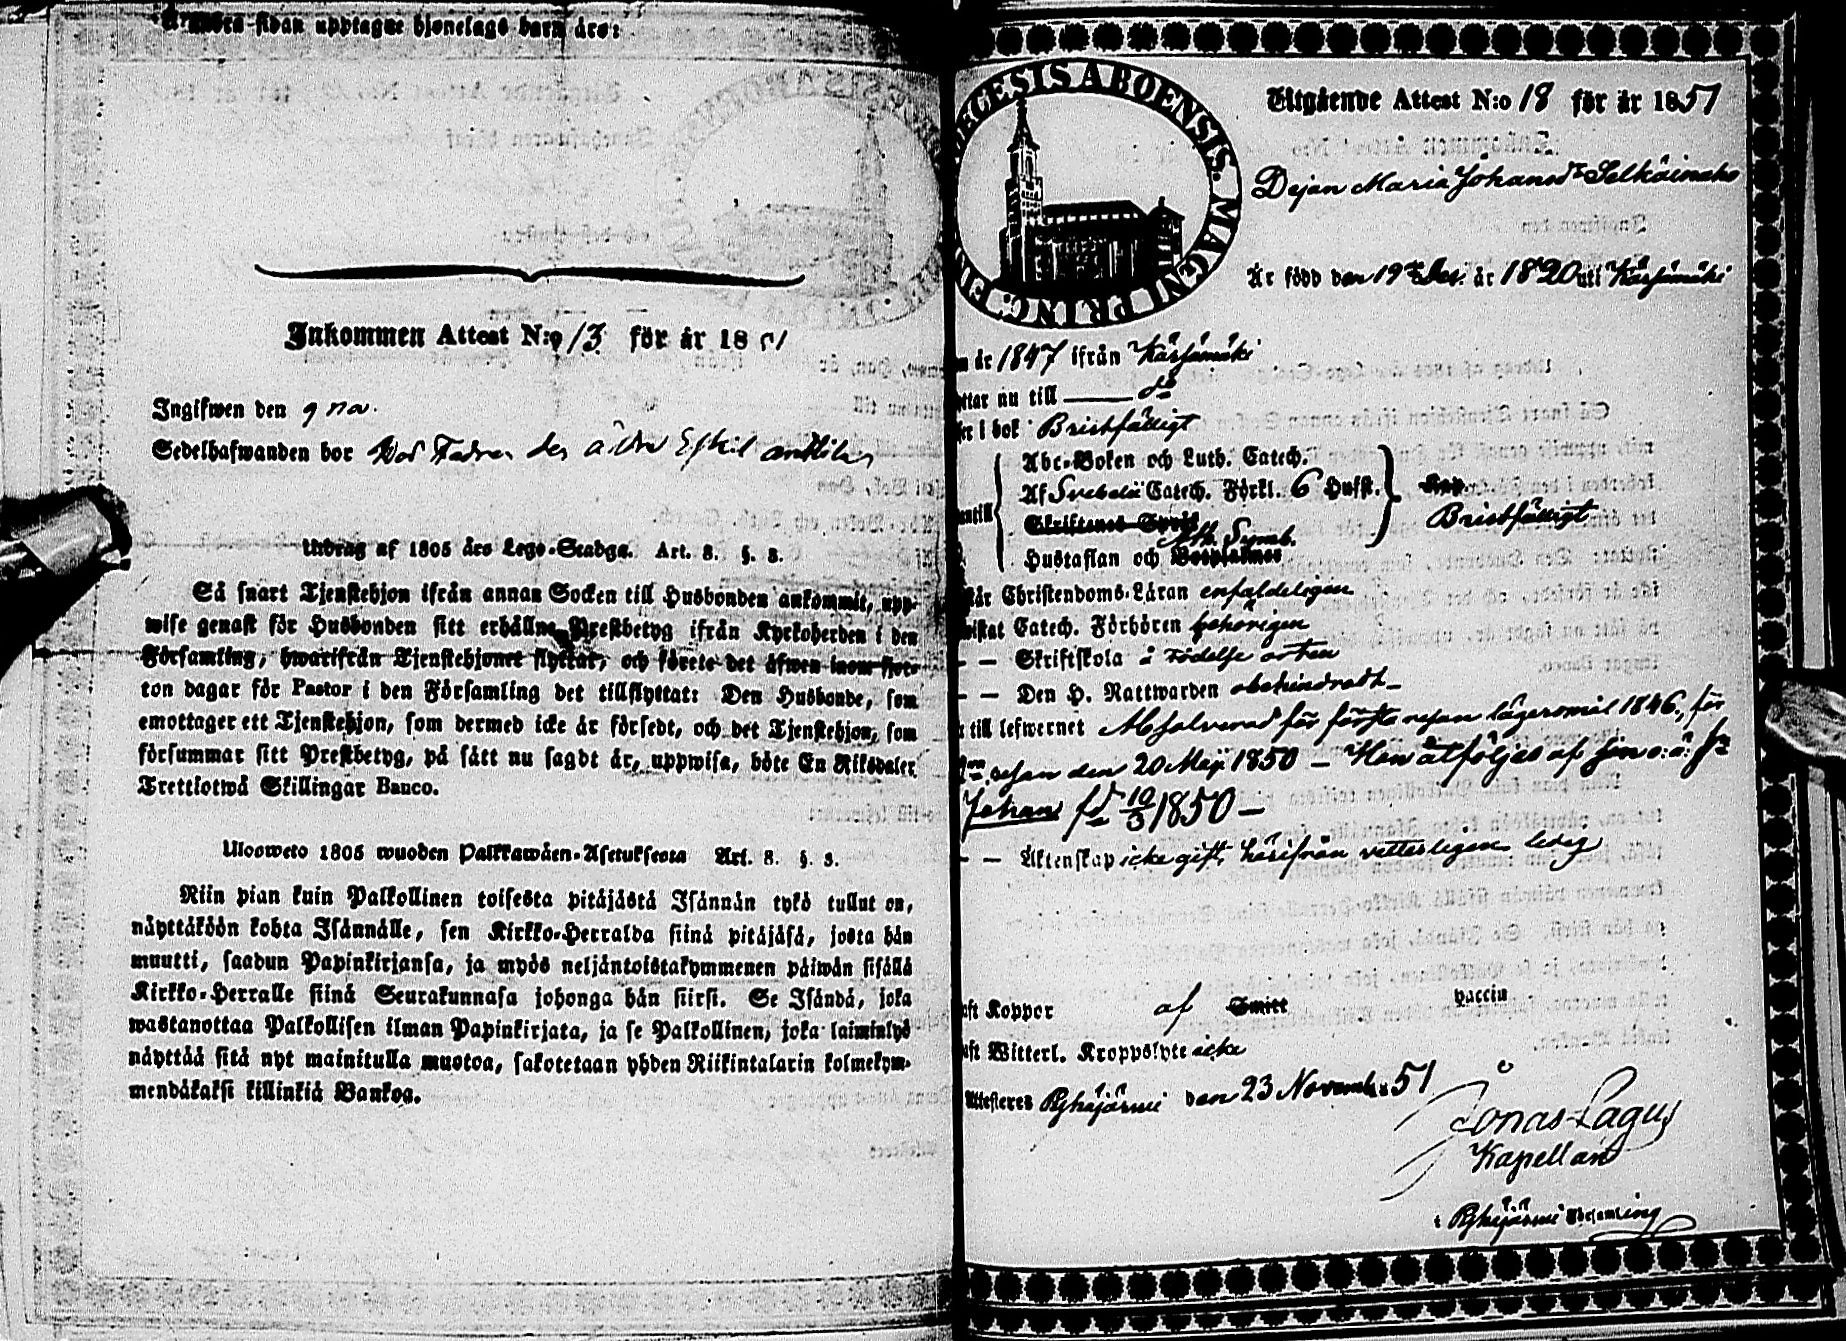 sidan upptagne hjonelags barn äro:
Inkommen Attest N:o 13 för år 1851
Ingifwen den 9
Sedelhafwanden bor Hos Fadren
Utdrag af 1805 års Lego-Stadga. Art. 8. §. 3.
Så snart Tjenstehjon ifrån annan Socken till Husbonden ankommit, upp-
wise genast för Husbonden sitt erhållne Prestbetyg ifrån Kyrkoherden i den
Församling, hwarifrån Tjenstehjonet flyttat, och förete det äfwen inom fjor-
ton dagar för Pastor i den Församling det tillflyttat: Den Husbonde, som
emottager ett Tjenstehjon, som dermed icke är försedt, och det Tjenstehjon, som
försummar sitt Prestbetyg, på sätt nu sagdt är, uppwisa, böte En Riksdaler
Trettiotwå Skillingar Banco.
Ulosweto 1805 wuoden Palkkawäen-Asetuksesta Art. 8. §. 3.
Niin pian kuin Palkollinen toisesta pitäjästä Isännän tykö tullut on,
näyttäköön kohta Isännälle, sen Kirkko-Herralda siinä pitäjäsä, josta hän
muutti, saadun Papinkirjansa, ja myös neljäntoistakymmenen päiwän sisällä
Kirkko-Herralle siinä Seurakunnasa johonga hän siirsi. Se Isändä, joka
wastanottaa Palkollisen ilman Papinkirjata, ja se Palkollinen, joka laiminlyö
näyttää sitä nyt mainitulla muotoa, sakotetaan yhden Riikintalarin kolmekym-
mendäkaksi killinkiä Bankoa.
ECESIS ABOENSIS. MAGNI PRINC. FIN
Utgående Attest N:o 18 för år 1851
Dejan Maria Johansdr Selkäinaho
Är född den 19 Dec. år 1820 uti Kärsämäki
år 1847 ifrån Kärsämäki
ttar nu till do
i bok Bristfälligt
Abc-Boken och Luth. Catech.
Af Svebelii Catech. Förkl. 6 Hufst.
antill Bristfälligt
Skriftenes Språk
Ath. Symb.
Hustaflan och Botpsalmer
står Christendoms-Läran enfaldeligen
wistat Catech. Förhören behörigen
— — Skriftskola å födelse orten
— — Den H. Nattwarden obehindradt
till lefwernet Absolverad för första resan lägersmål 1846, för
2dra resan den 20 Maji 1850 — Hon åtföljes af sin o. ä. Son
Johan fd 10/3 1850 —
— — Äktenskap icke gift, härifrån vitterligen ledig
aft Koppor af Smitt vaccin
aft Witterl. Kroppslyte icke
Attesteres Pyhäjärwi den 23 November 51
Jonas Lagus
Kapellan
i Pyhäjärwi Församling